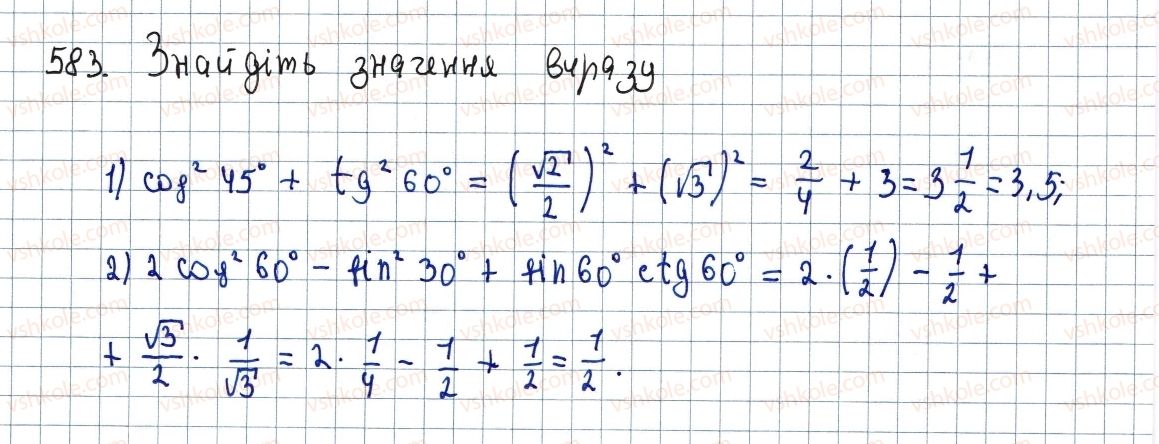 583. Знайдіть значення виразу
1) cos² 45° + tg² 60° = (√2/2)² + (√3)² = 2/4 + 3 = 3 1/2 = 3,5;
2) 2 cos² 60° - sin² 30° + sin 60° ctg 60° = 2 · (1/2) - 1/2 +
+ √3/2 · 1/√3 = 2 · 1/4 - 1/2 + 1/2 = 1/2.